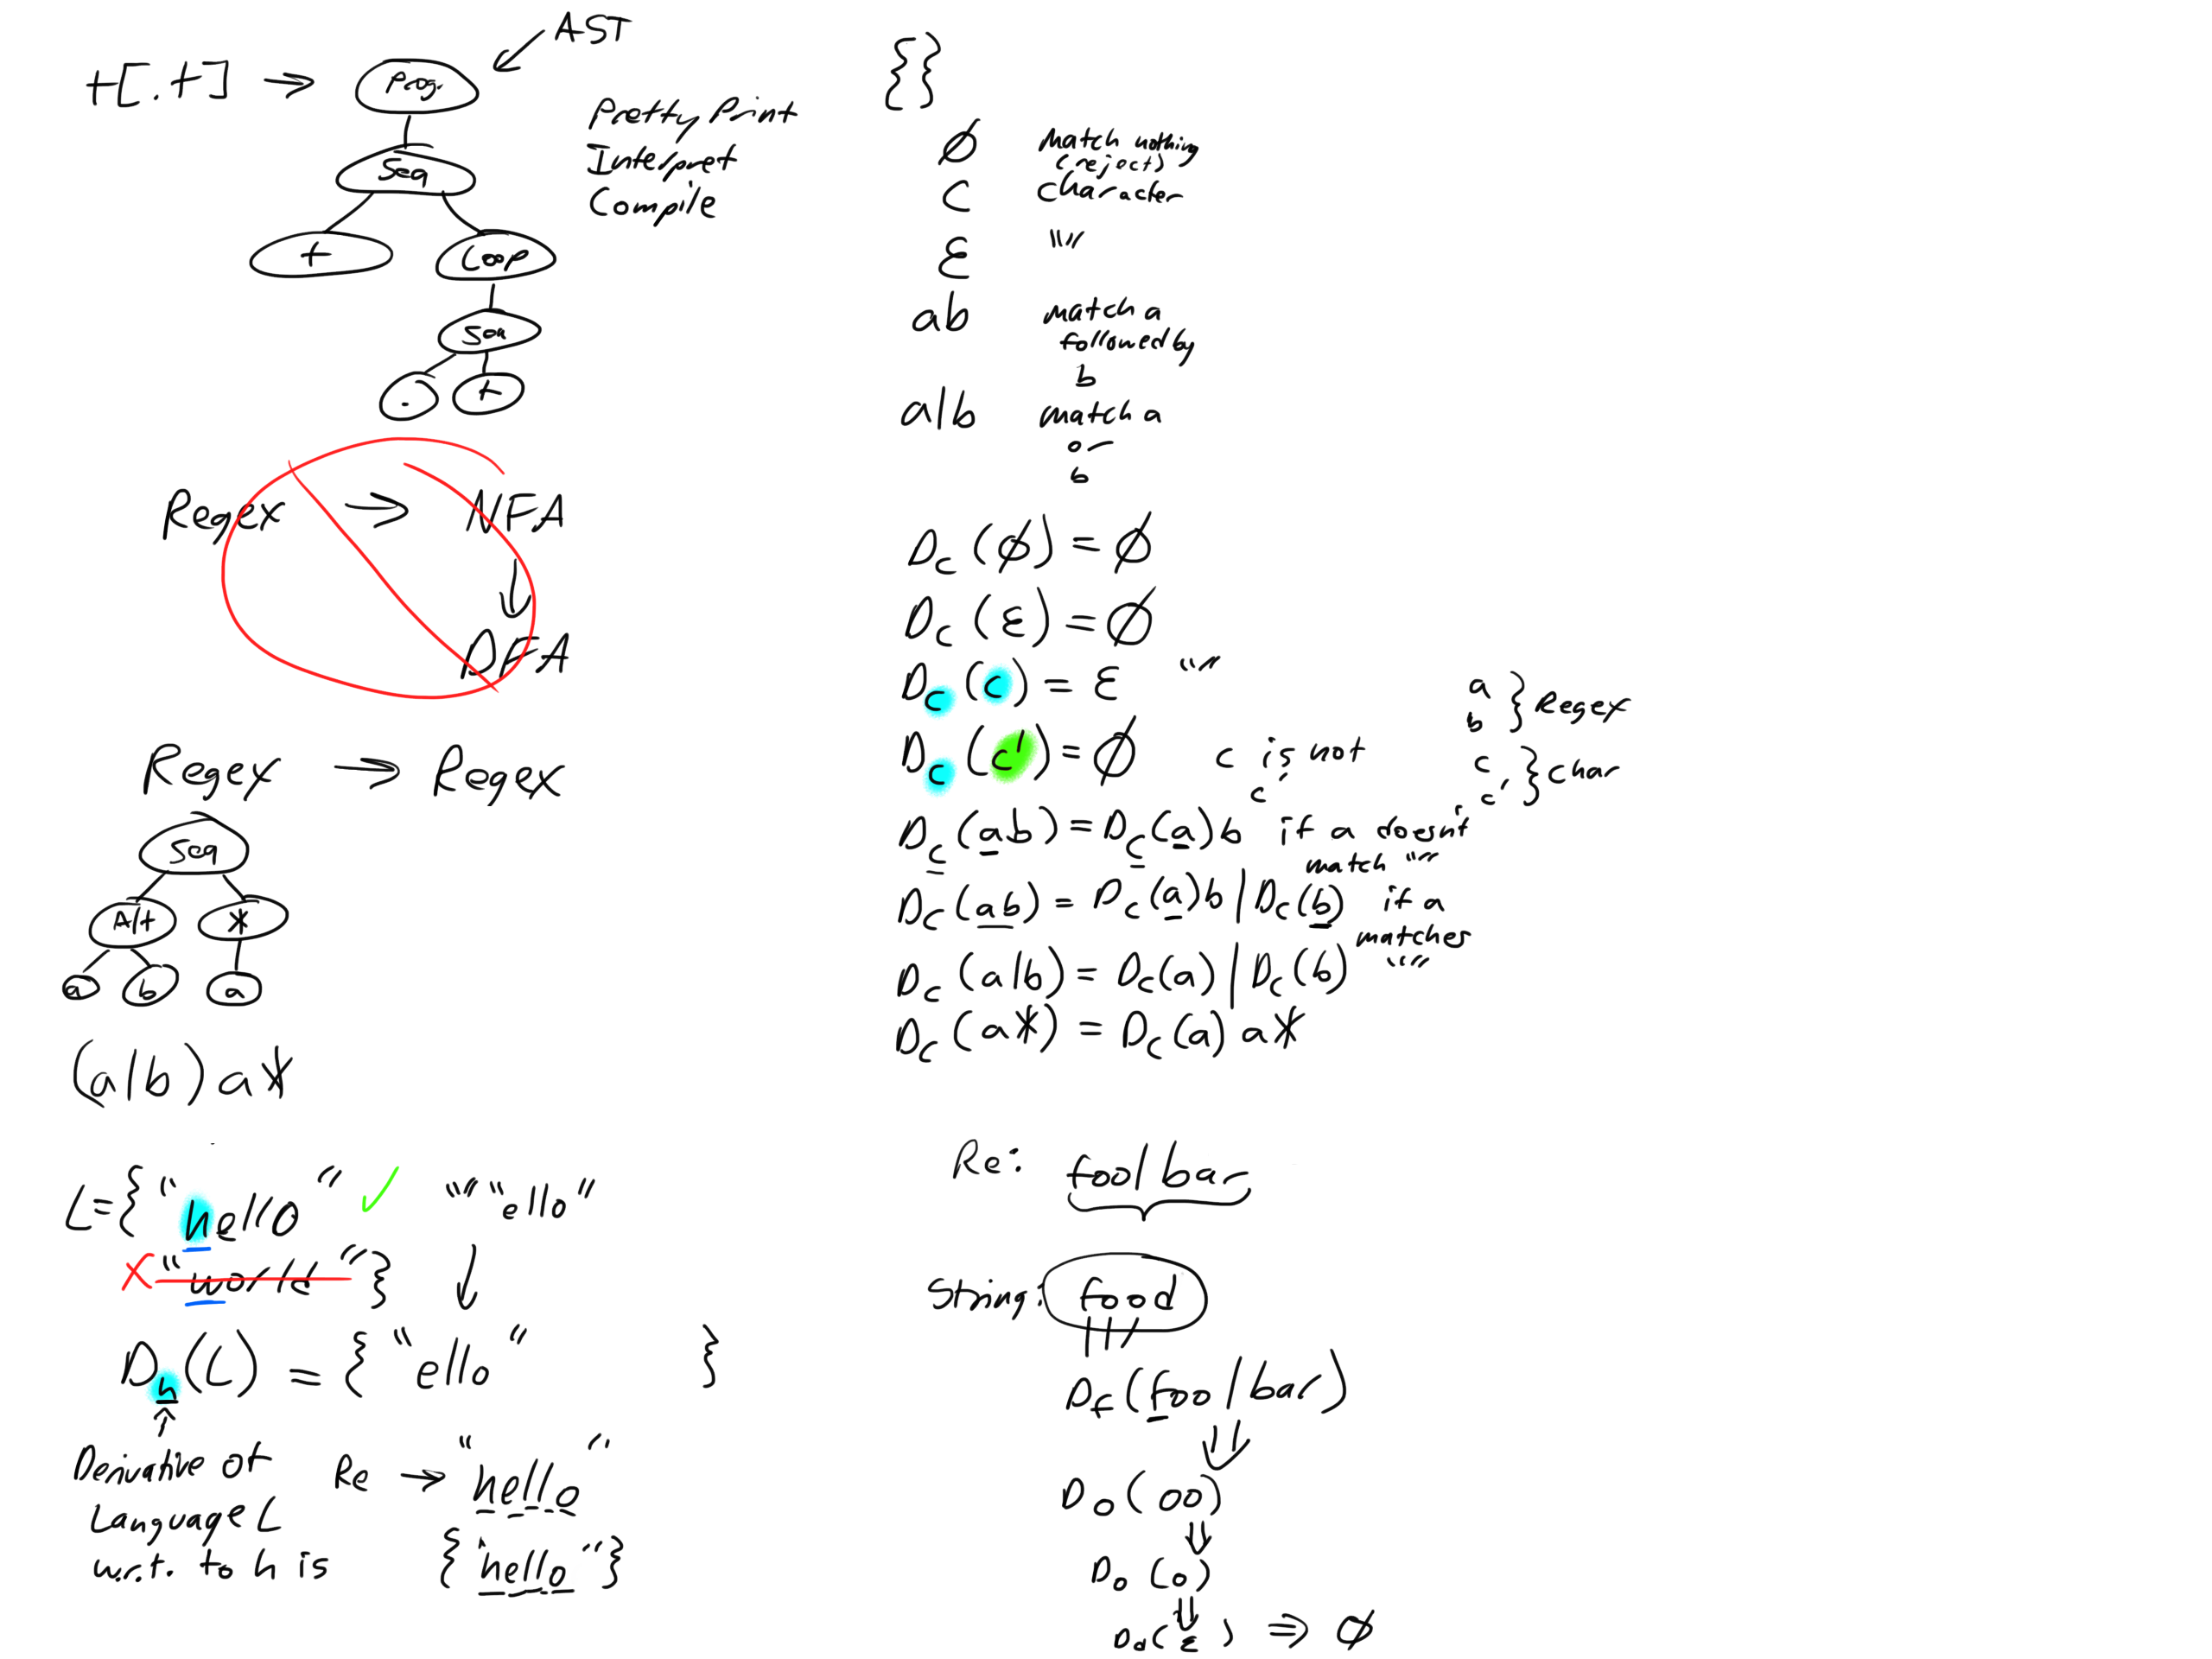 +[.+] → Prog. ← AST
Seq
+ Loop
Seq
. +
Pretty Print
Interpret
Compile
Regex → NFA
↓
DFA
Regex → Regex
Seq
Alt *
a b a
(a|b) a*
L={ "hello" ✓ "" "ello"
X "world" } ↓
Dh(L) = { "ello" }
↑
Derivative of
Language L
w.r.t. to h is
Re → "hello"
{ "hello" }
{}
∅ Match nothing
(reject)
C character
ε ""
ab match a
followed by
b
a|b match a
or
b
Dc(∅) = ∅
Dc(ε) = ∅
Dc(c) = ε ""
Dc(c') = ∅ c is not
c'
a
b } Regex
c
c' } char
Dc(ab) = Dc(a)b if a doesn't
match ""
Dc(ab) = Dc(a)b | Dc(b) if a
matches
""
Dc(a|b) = Dc(a) | Dc(b)
Dc(a*) = Dc(a) a*
Re: foo|bar
String: food
Df(foo|bar)
⇓
Do(oo)
⇓
Do(o)
⇓
Dd(ε) ⇒ ∅